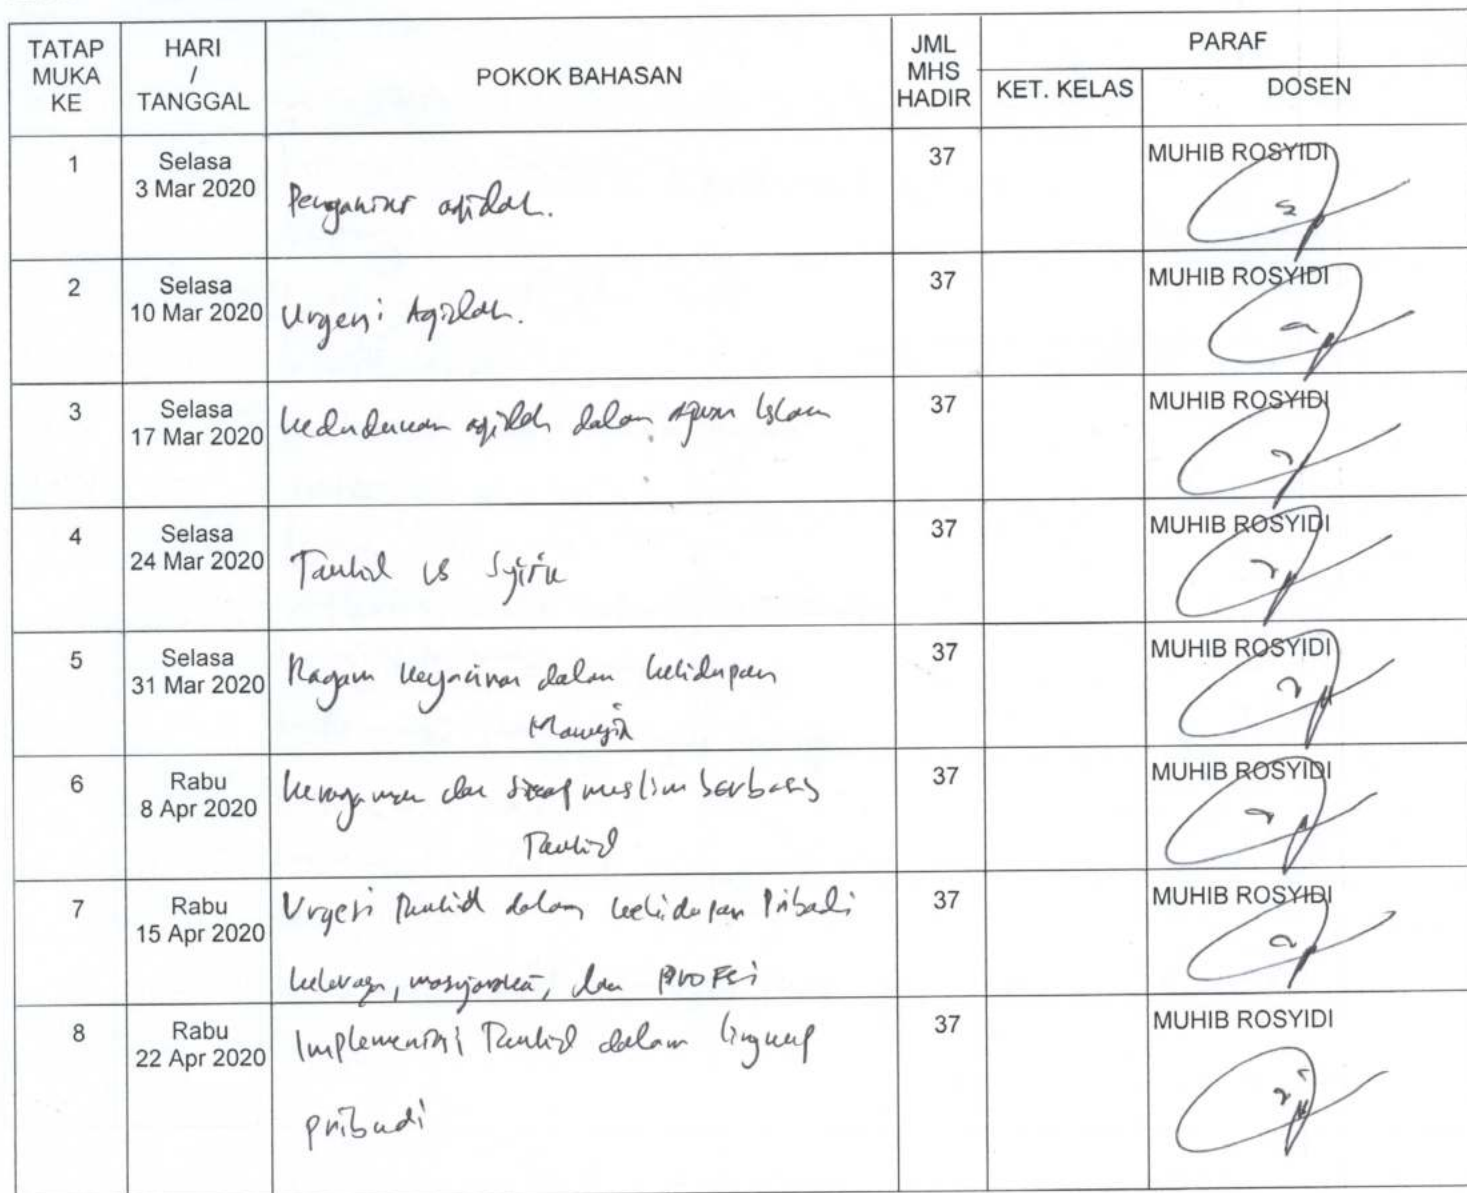 TATAP MUKA KE
HARI / TANGGAL
POKOK BAHASAN
JML MHS HADIR
PARAF
KET. KELAS
DOSEN
1
Selasa
3 Mar 2020
Pengantar aqidah.
37
MUHIB ROSYIDI
2
Selasa
10 Mar 2020
Urgensi Aqidah.
37
MUHIB ROSYIDI
3
Selasa
17 Mar 2020
kedudukan aqidah dalam agama Islam
37
MUHIB ROSYIDI
4
Selasa
24 Mar 2020
Tauhid vs Syirik
37
MUHIB ROSYIDI
5
Selasa
31 Mar 2020
Ragam keyakinan dalam kehidupan
Manusia
37
MUHIB ROSYIDI
6
Rabu
8 Apr 2020
keragaman dan sikap muslim berbasis
Tauhid
37
MUHIB ROSYIDI
7
Rabu
15 Apr 2020
Urgensi Tauhid dalam kehidupan Pribadi
keluarga, masyarakat, dan PROFESI
37
MUHIB ROSYIDI
8
Rabu
22 Apr 2020
Implementasi Tauhid dalam lingkup
pribadi
37
MUHIB ROSYIDI